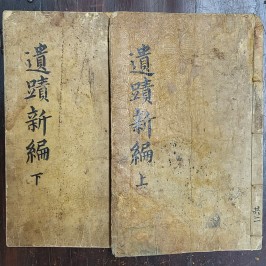 遺蹟新編
上
共二
遺蹟新編
下